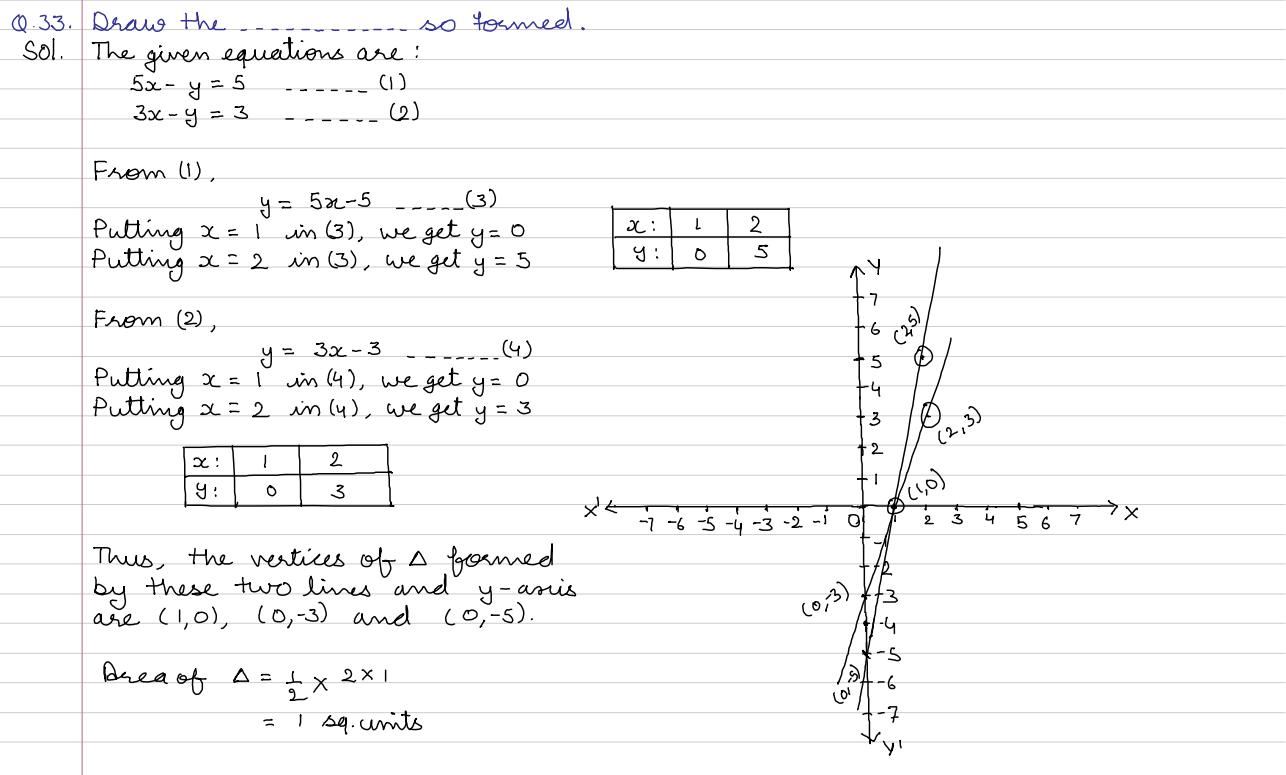 Q.33. Draw the ------------ so formed.
Sol. The given equations are :
5x - y = 5 ------ (1)
3x - y = 3 ------ (2)
From (1),
y = 5x-5 -----(3)
Putting x = 1 in (3), we get y = 0
Putting x = 2 in (3), we get y = 5
x : 1 2
y : 0 5
From (2),
y = 3x-3 -------(4)
Putting x = 1 in (4), we get y = 0
Putting x = 2 in (4), we get y = 3
x : 1 2
y : 0 3
Thus, the vertices of Δ formed
by these two lines and y-axis
are (1,0), (0,-3) and (0,-5).
Area of Δ = 1/2 × 2 × 1
= 1 sq. units
Y
7
6
(2,5)
5
4
3
(2,3)
2
1
(1,0)
X' -7 -6 -5 -4 -3 -2 -1 0 1 2 3 4 5 6 7 X
-1
-2
(0,-3) -3
-4
-5
(0,-5) -6
-7
Y'